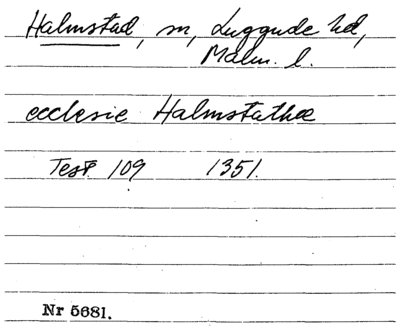 Halmstad, sn, Luggude hd,
Malm. l.
ecclesie Halmstathæ
Test. 109 1351.
Nr 5681.